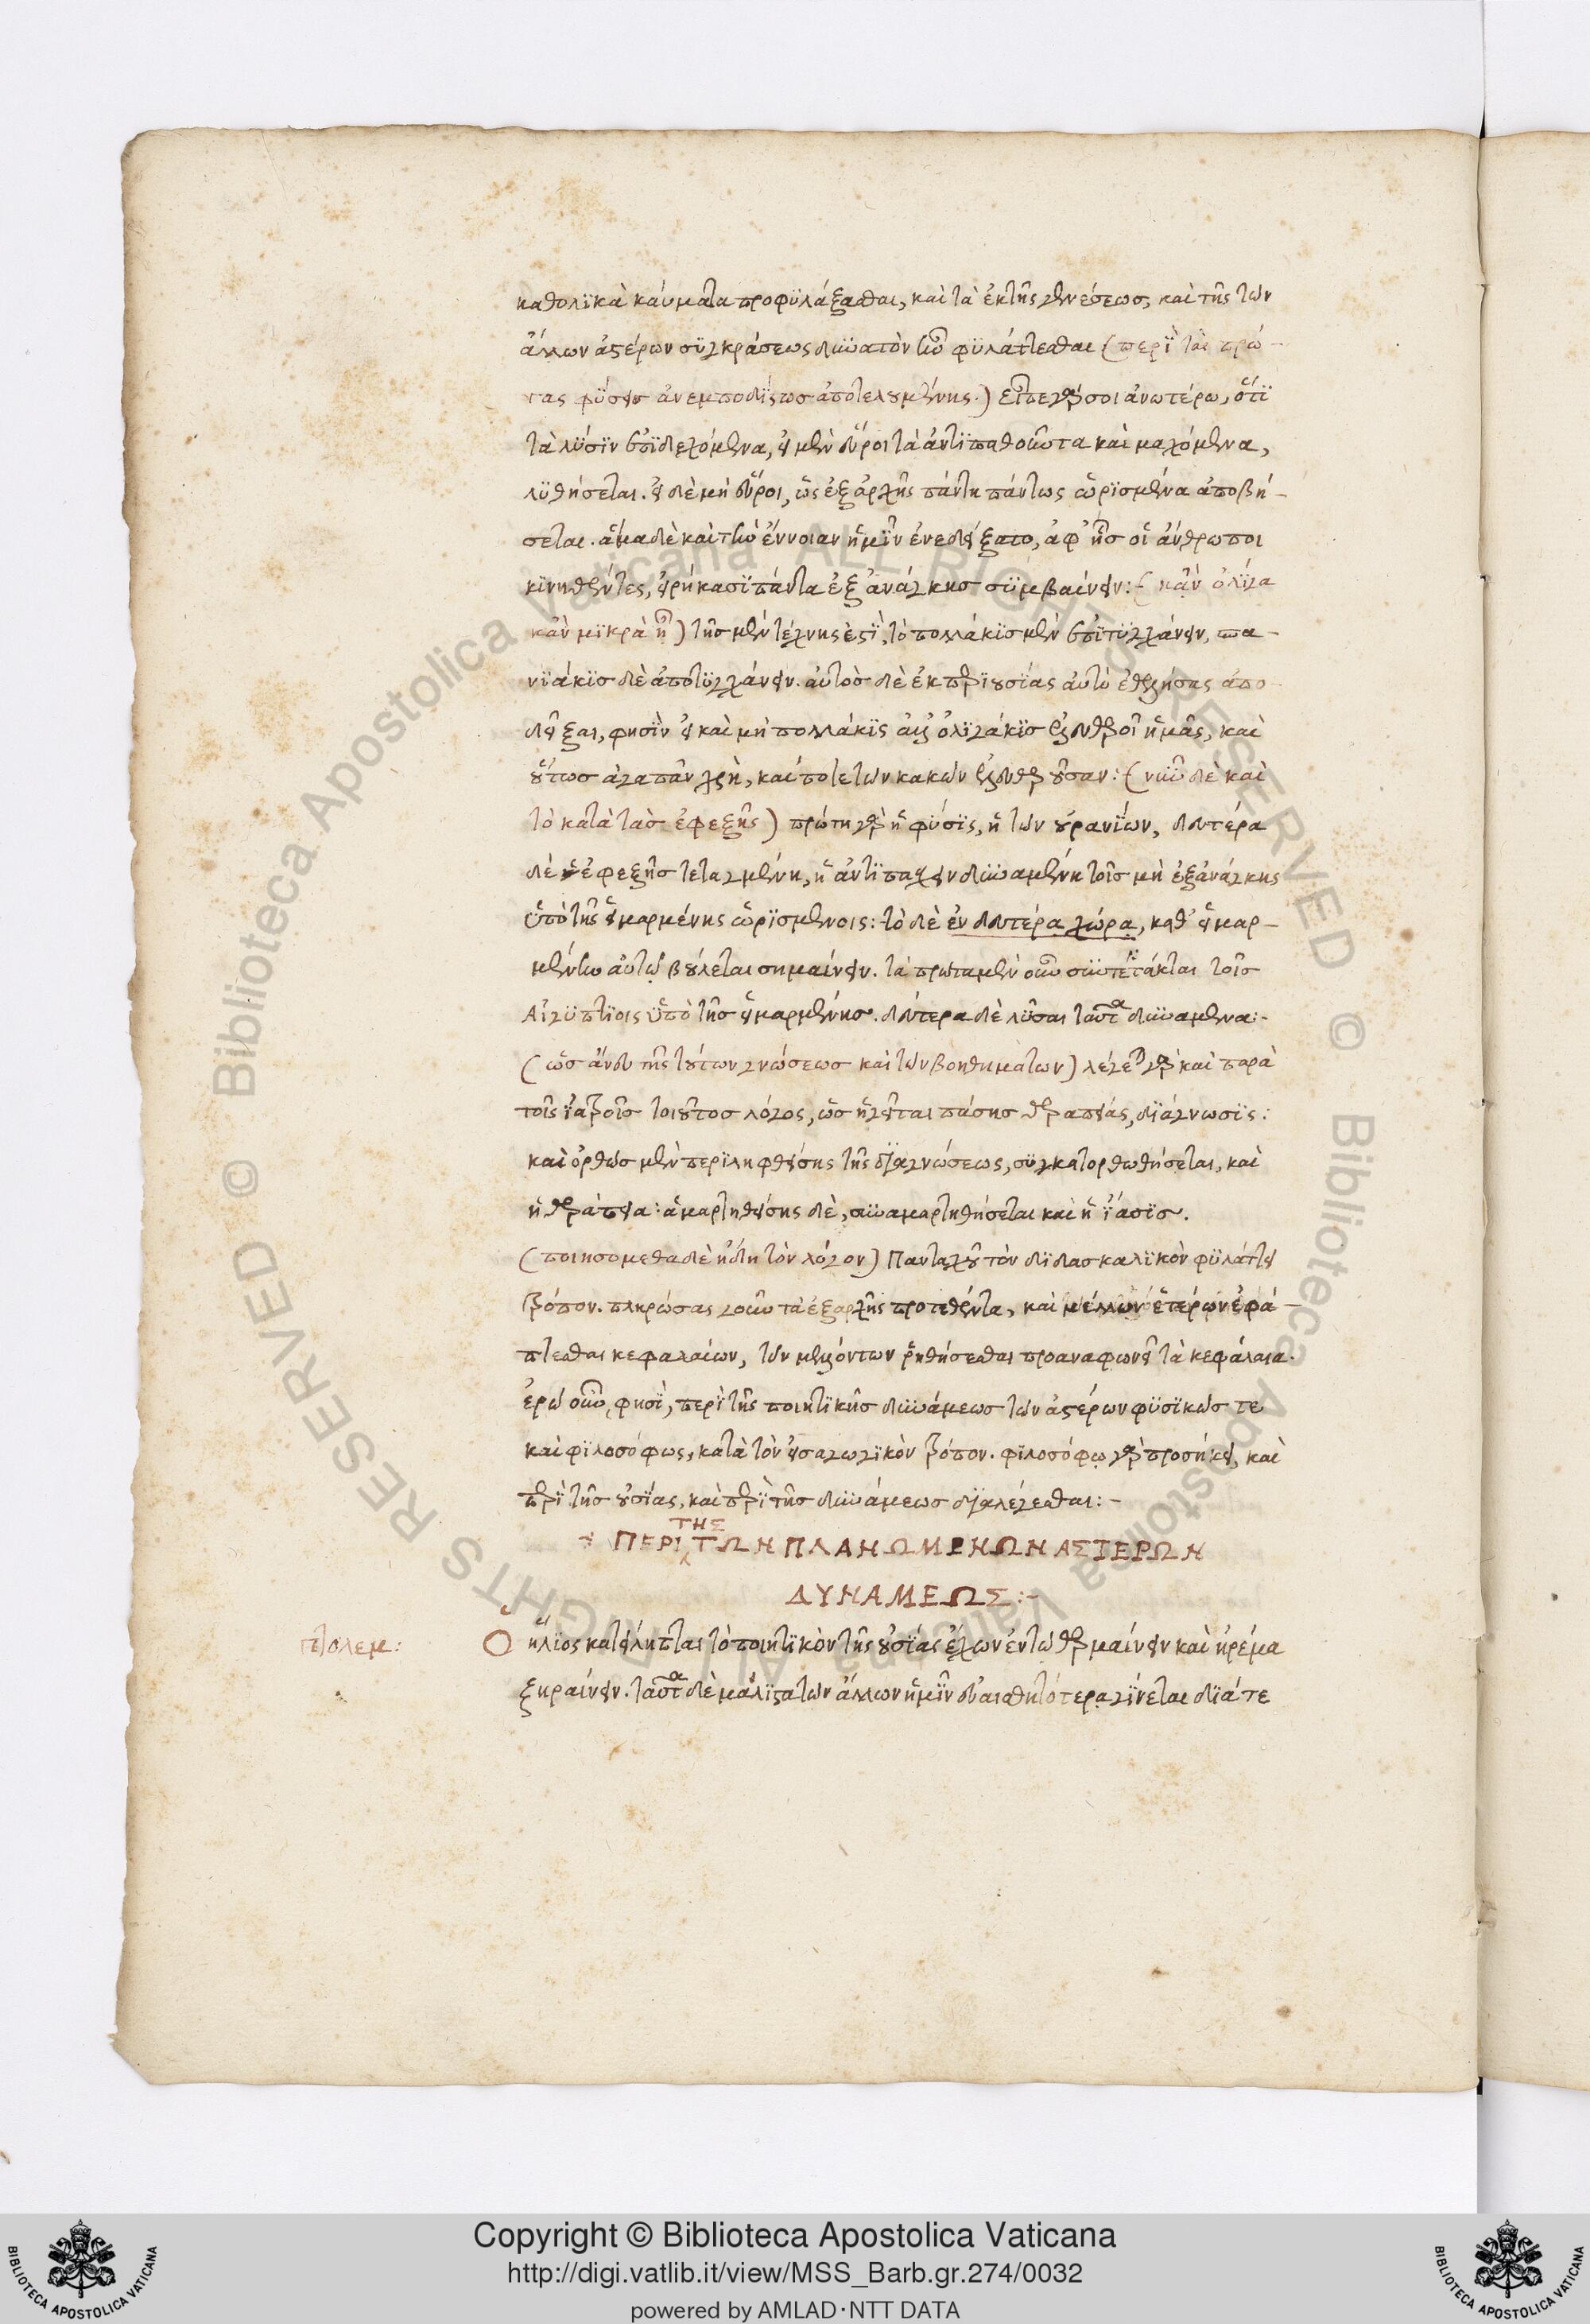 καθολικὰ καύματα προφυλάξασθαι, καὶ τὰ ἐκ τῆς γενέσεως, καὶ τῆς τῶν
ἄλλων ἀστέρων συγκράσεως δυνατὸν ἦν φυλάττεσθαι (περὶ τὰς πρώ-
τας φύσεις ἀνεμποδίστως ἀποτελουμένης.) εἶπε γάρ σοι ἀνωτέρω, ὅτι
τὰ λύσιν ἐπιδεχόμενα, εἰ μὲν εὕροι τὰ ἀντιπαθοῦντα καὶ μαχόμενα,
λυθήσεται. εἰ δὲ μὴ εὕροι, ὡς ἐξ ἀρχῆς πάντη πάντως ὡρισμένα ἀποβή-
σεται. ἅμα δὲ καὶ τὴν ἔννοιαν ἡμῖν ἐνεδείξατο, ἀφ' ἧς οἱ ἄνθρωποι
κινηθέντες, εἰρήκασι πάντα ἐξ ἀνάγκης συμβαίνειν: (κἂν ὀλίγα
κἂν μικρὰ ᾖ) τῆς μὲν τέχνης ἐστὶ, τὸ πολλάκις μὲν ἐπιτυγχάνειν, πα-
νιάκις δὲ ἀποτυγχάνειν. αὐτὸς δὲ ἐκ περιουσίας αὐτὸ ἐθελήσας ἀπο-
δεῖξαι, φησὶν εἰ καὶ μὴ πολλάκις ἀλλ' ὀλιγάκις ἐλευθεροῖ ἡμᾶς, καὶ
οὕτως ἀγαπᾶν χρὴ, καί ποτε τῶν κακῶν ἐλευθεροῦσαν: (νῦν δὲ καὶ
τὸ κατὰ τὰς ἐφεξῆς) πρώτη γὰρ ἡ φύσις, ἡ τῶν οὐρανίων, δευτέρα
δὲ ἡ ἐφεξῆς τεταγμένη, ἡ ἀντιπάσχειν δυναμένη τοῖς μὴ ἐξ ἀνάγκης
ὑπὸ τῆς εἱμαρμένης ὡρισμένοις: τὸ δὲ ἐν δευτέρα χώρα, καθ' εἱμαρ-
μένην αὐτῷ βούλεται σημαίνειν. τὰ πρῶτα μὲν οὖν συντετάκται τοῖς
Αἰγυπτίοις ὑπὸ τῆς εἱμαρμένης. δεύτερα δὲ λῦσαι ταῦτα δυνάμενα:-
(ὡς ἄνευ τῆς τούτων γνώσεως καὶ τῶν βοηθημάτων) λέγεται γὰρ καὶ παρὰ
τοῖς ἰατροῖς τοιοῦτος λόγος, ὡς ἡγεῖται πάσης θεραπείας, διάγνωσις:
καὶ ὀρθῶς μὲν περιληφθείσης τῆς διαγνώσεως, συγκατορθωθήσεται, καὶ
ἡ θεραπεία: ἁμαρτηθείσης δὲ, συναμαρτηθήσεται καὶ ἡ ἴασις.
(ποιησόμεθα δὲ ἤδη τὸν λόγον) Πανταχοῦ τὸν διδασκαλικὸν φυλάττει
τρόπον. πληρώσας γοῦν τὰ ἐξαρχῆς προτεθέντα, καὶ μέλλων ἑτέρων ἐφά-
πτεσθαι κεφαλαίων, τῶν μελλόντων ῥηθήσεσθαι προαναφωνεῖ τὰ κεφάλαια.
ἐρῶ οὖν, φησὶ, περὶ τῆς ποιητικῆς δυνάμεως τῶν ἀστέρων φυσικῶς τε
καὶ φιλοσόφως, κατὰ τὸν εἰσαγωγικὸν τρόπον. φιλοσόφῳ γὰρ προσήκει, καὶ
περὶ τῆς οὐσίας, καὶ περὶ τῆς δυνάμεως διαλέγεσθαι:-
ΠΕΡΙ ΤΗΣ ΤΩΝ ΠΛΑΝΩΜΕΝΩΝ ΑΣΤΕΡΩΝ
ΔΥΝΑΜΕΩΣ:-
πτολεμ: Ὁ ἥλιος κατείληπται τὸ ποιητικὸν τῆς οὐσίας ἔχων ἐν τῷ θερμαίνειν καὶ ἠρέμα
ξηραίνειν. ταῦτα δὲ μάλιστα τῶν ἄλλων ἡμῖν εὐαισθητότερα γίνεται διά τε
Copyright © Biblioteca Apostolica Vaticana
http://digi.vatlib.it/view/MSS_Barb.gr.274/0032
powered by AMLAD·NTT DATA